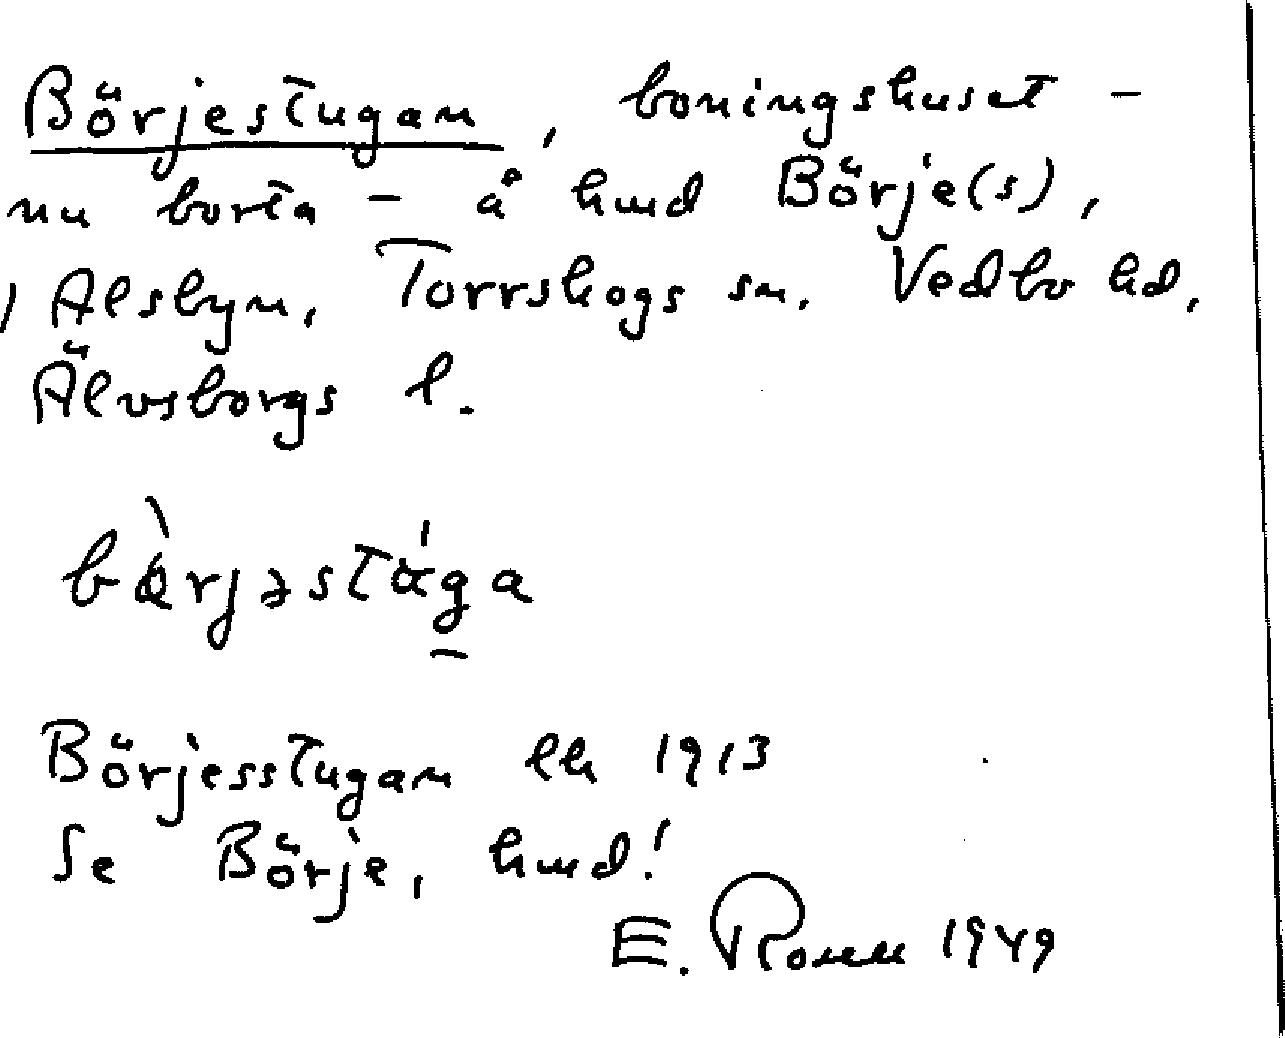 Börjestugan, boningshuset -
nu borta - å hmd Börje(s),
i Alsbyn, Torrskogs sn. Vedbo hd,
Älvsborgs l.
Börjesstugan lk 1913
Se Börje, hmd!
E. Rosell 1949